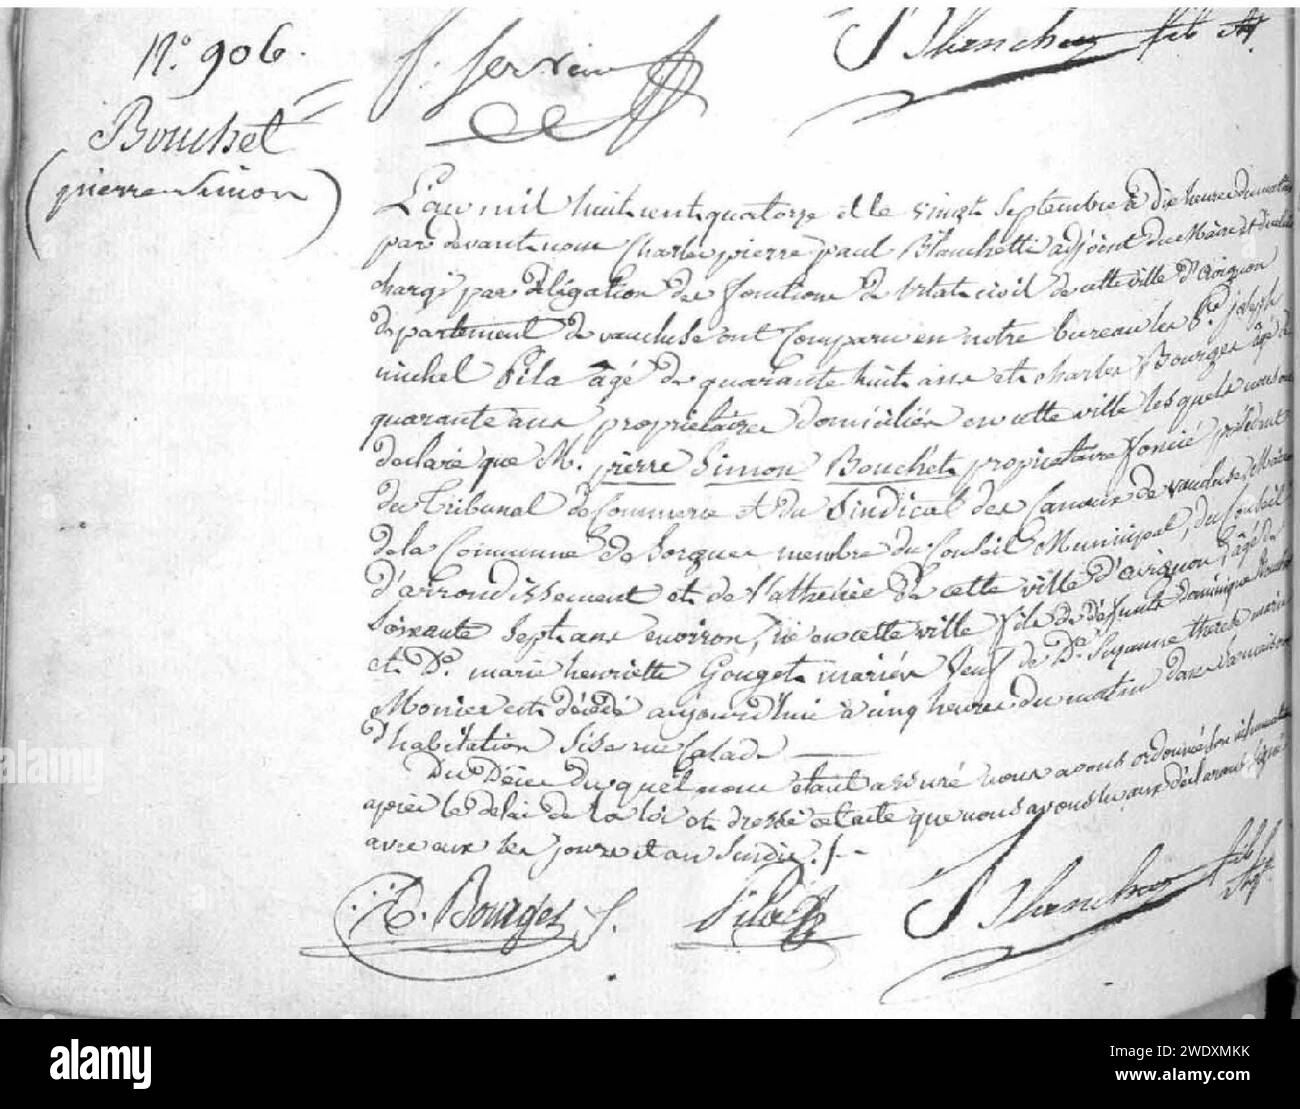 N.° 906.
Bouchet
(pierre Simon)
f. Servier
L'an mil huit cent quatorze et le vingt Septembre à dix heures du matin
par devant nous Charles pierre paul Blanchetti adjoint du Maire et
chargé par délégation des fonctions de l'état civil de cette ville d'avignon
departement de vaucluse ont Comparu en notre bureau les Srs joseph
michel Pila âgé de quarante huit ans et charles Bourges âgé de
quarante ans propriétaires domiciliés en cette ville lesquels nous ont
declaré que M. pierre Simon Bouchet propriétaire foncié président
du Tribunal de Commerce et du Sindicat des Canaux de vaucluse, Maire
de la Commune de Sorgues membre du Conseil Municipal, du Conseil
d'arrondissement et de l'athenée de cette ville d'avignon, âgé de
soixante sept ans environ, né en cette ville fils de défunts dominique Bouchet
et De. marie henriette Gouget mariés veuf de De. Suzanne therese marie
Monier est décédé aujourd'hui à cinq heures du matin dans sa maison
d'habitation sise rue Calade
Du Décès duquel nous étant assuré nous avons ordonné son inhumation
après le délai de la loi et dressé cet acte que nous avons lu aux déclarans signé
avec eux les jour et an Susdit.
C. Bourges
Pila
alamy
alamy
Image ID: 2WDXMKK
www.alamy.com